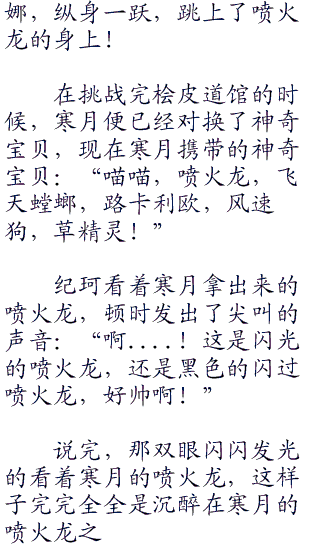 娜，纵身一跃，跳上了喷火
龙的身上！
在挑战完桧皮道馆的时
候，寒月便已经对换了神奇
宝贝，现在寒月携带的神奇
宝贝：“喵喵，喷火龙，飞
天螳螂，路卡利欧，风速
狗，草精灵！”
纪珂看着寒月拿出来的
喷火龙，顿时发出了尖叫的
声音：“啊....！这是闪光
的喷火龙，还是黑色的闪过
喷火龙，好帅啊！”
说完，那双眼闪闪发光
的看着寒月的喷火龙，这样
子完完全全是沉醉在寒月的
喷火龙之